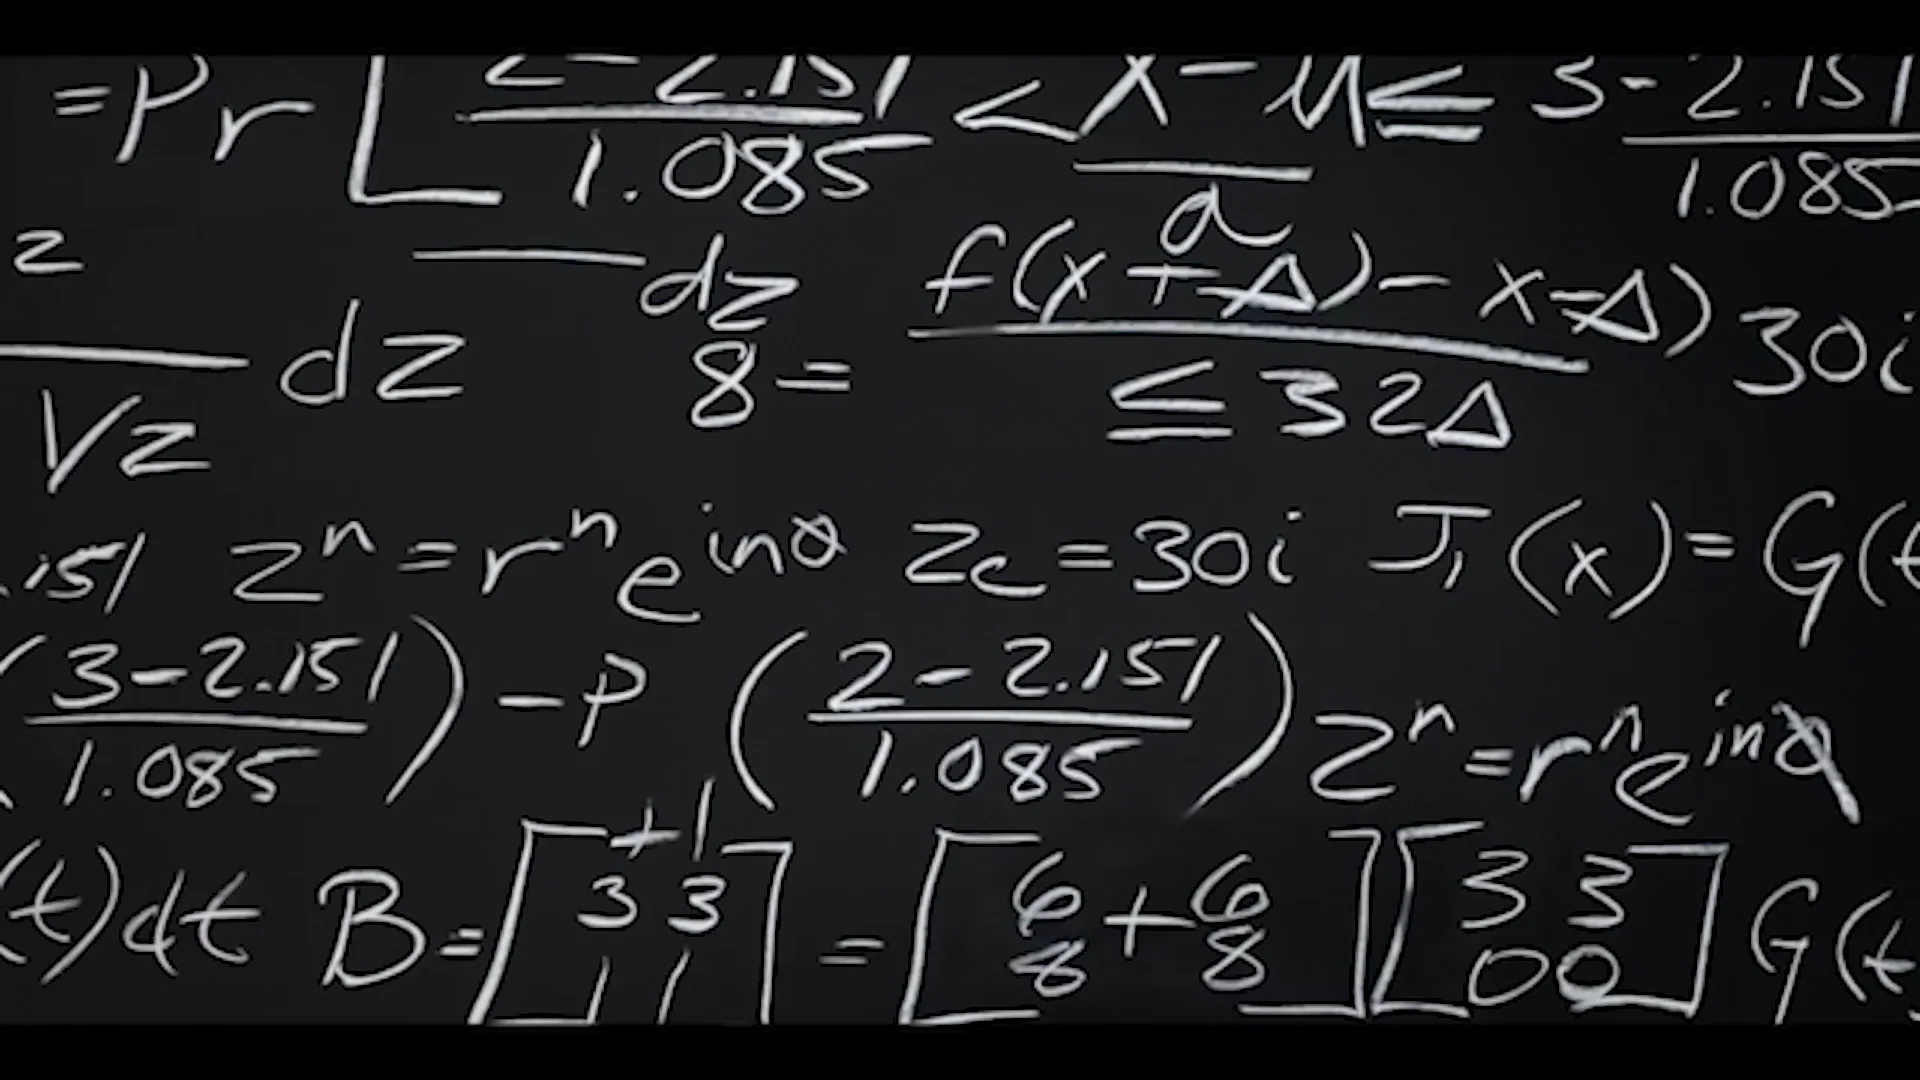 =Pr[ (2-2.151)/1.085 < (X-μ)/a ≤ (3-2.151)/1.085
z dz f(x+Δ)-x-Δ) 30i
dz 8= ≤32Δ
√z
.151 zⁿ=rⁿe^inθ Zc=30i J₁(x)=G(t
(3-2.151)/1.085) -P ((2-2.151)/1.085) zⁿ=rⁿe^inθ
(t)dt B=[+1 33 11]=[6/8+6/8][33 00] G(t